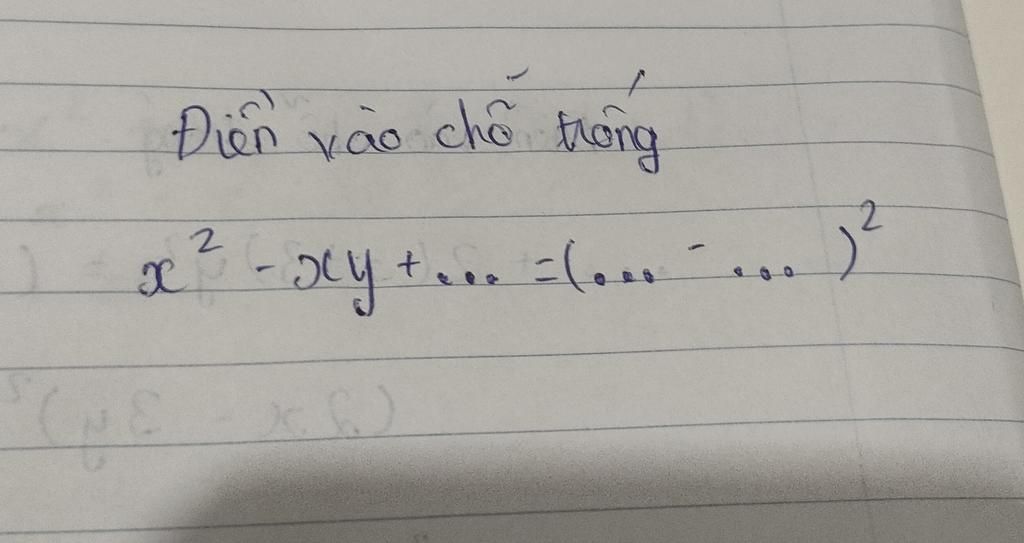 Điền vào chỗ trống
x² - xy + ... = (... - ... )²
(2x - 3y)²